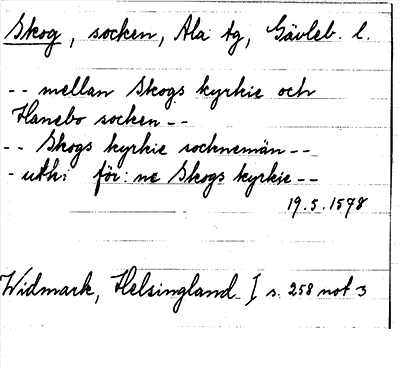 Skog, socken, Ala tg, Gävleb. l.
-- mellan Skogs kyrkie och
Hanebo socken --
-- Skogs kyrkie sochnemän --
- uth: för: ne Skogs kyrkie --
19.5.1598
Widmark, Helsingland I s. 258 not 3